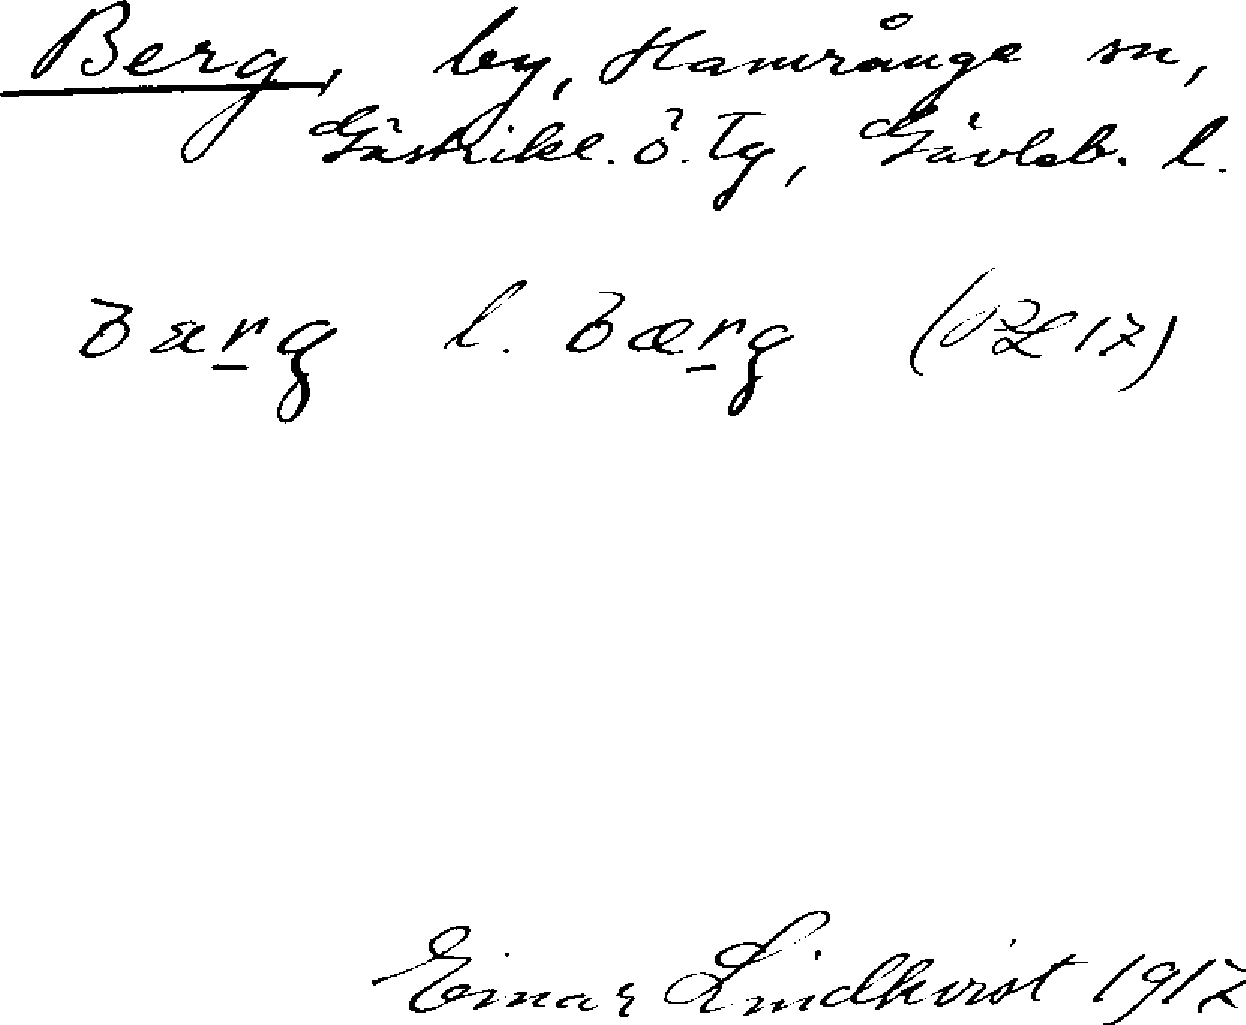 Berg, by, Hamrånge sn,
Gästrikl. ö. Tg, Gävleb. l.
bærg l. bærg
Einar Lindkvist 1917